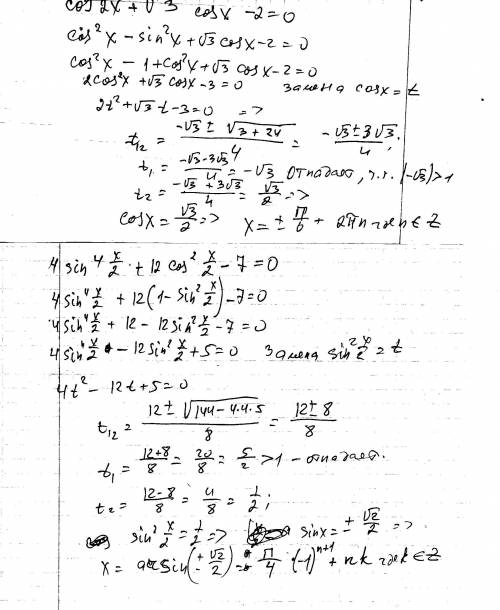 cos 2x + √3 cosx - 2 = 0
cos²x - sin²x + √3 cosx - 2 = 0
cos²x - 1 + cos²x + √3 cosx - 2 = 0
2cos²x + √3 cosx - 3 = 0 замена cosx = t
2t² + √3 t - 3 = 0 =>
t₁₂ = (-√3 ± √(3 + 24))/4 = (-√3 ± 3√3)/4;
t₁ = (-√3 - 3√3)/4 = -√3 отпадает, т.к. (-√3) > 1
t₂ = (-√3 + 3√3)/4 = √3/2 =>
cosx = √3/2 => x = ± π/6 + 2πn где n ∈ Z
4 sin⁴ x/2 + 12 cos² x/2 - 7 = 0
4 sin⁴ x/2 + 12(1 - sin² x/2) - 7 = 0
4 sin⁴ x/2 + 12 - 12 sin² x/2 - 7 = 0
4 sin⁴ x/2 - 12 sin² x/2 + 5 = 0 Замена sin² x/2 = t
4t² - 12t + 5 = 0
t₁₂ = (12 ± √(144 - 4·4·5))/8 = (12 ± 8)/8
t₁ = (12+8)/8 = 20/8 = 5/2 > 1 - отпадает.
t₂ = (12-8)/8 = 4/8 = 1/2;
sin² x/2 = 1/2 => sinx = ± √2/2 =>
x = arcsin(± √2/2) = π/4 · (-1)ⁿ⁺¹ + πk где k ∈ Z